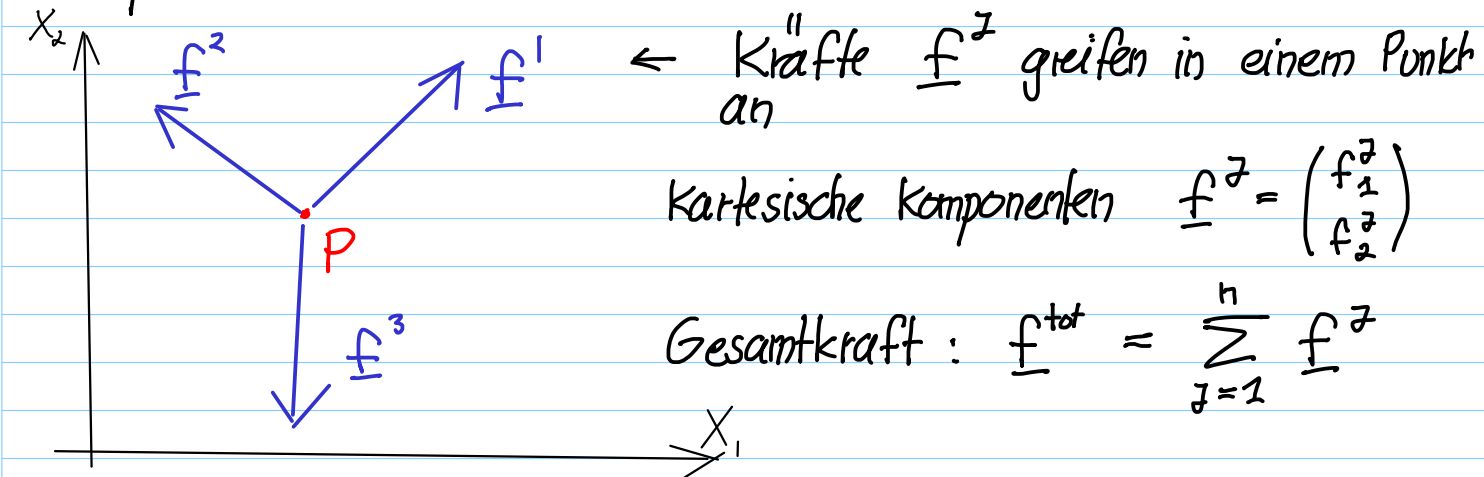 X₂
f²
f¹
← Kräfte f^J greifen in einem Punkt
an
P
Kartesische Komponenten f^J = (f₁^J f₂^J)
f³
Gesamtkraft : f^tot = ∑_{J=1}^{n} f^J
X₁